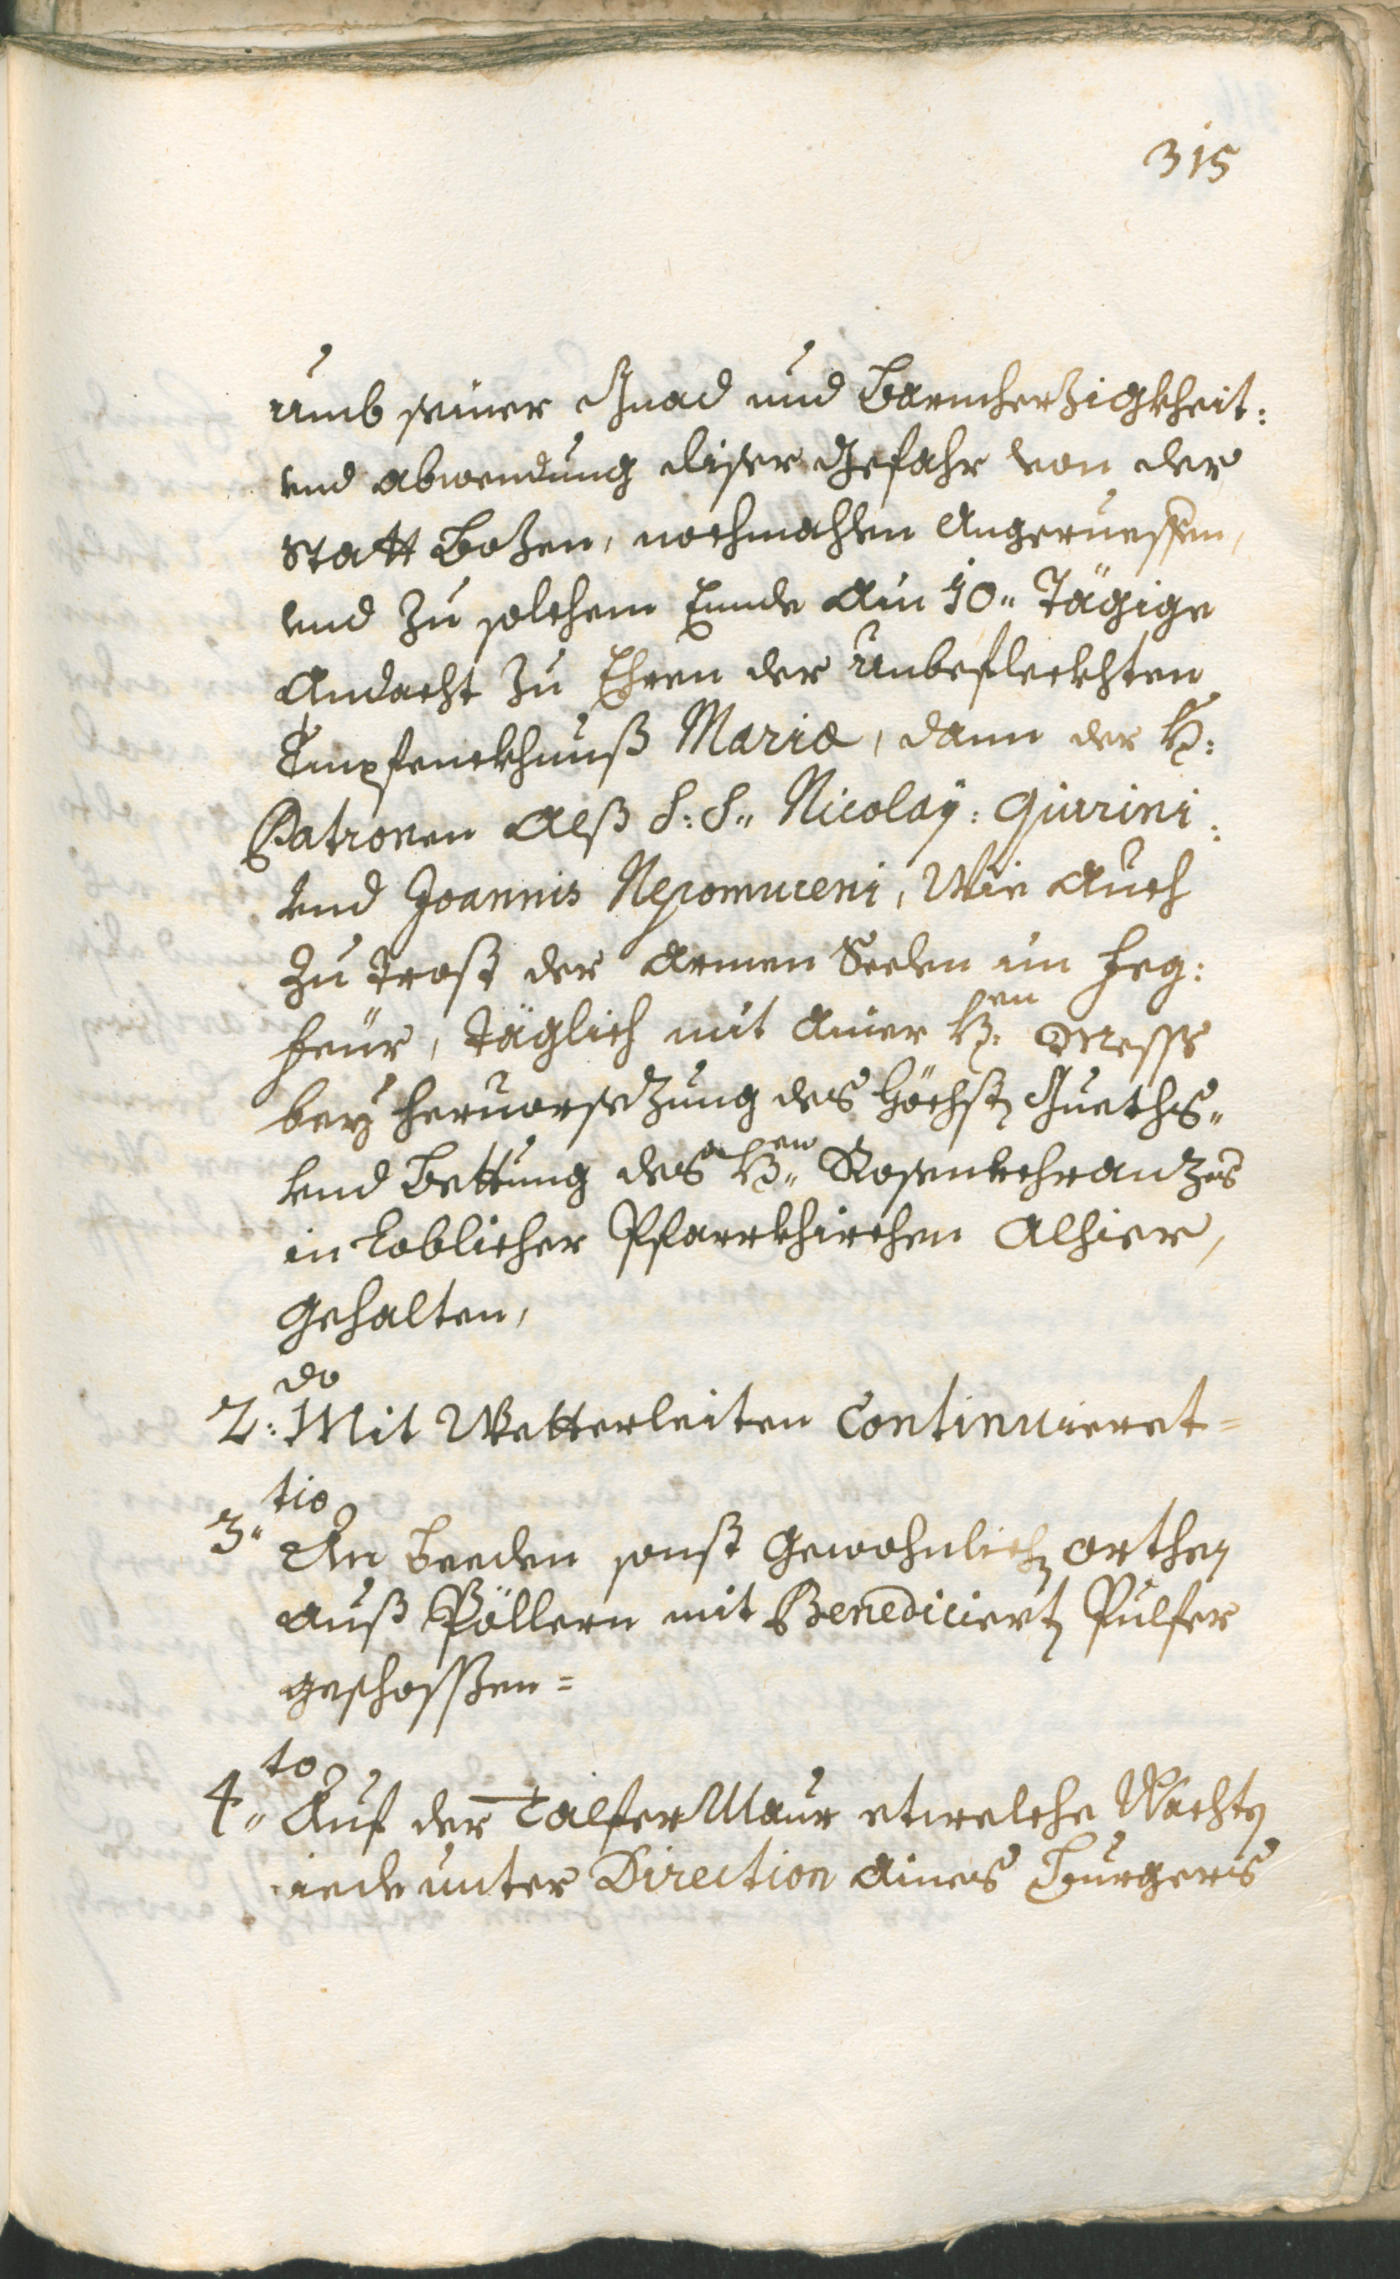 315
umb seiner Gnad und Barmherzigkheit:
und abwendung diser Gefahr von der
Statt Bozen, nochmahlen Angeruessen,
und Zu solchem Ennde Ain 10„ Tägige
Andacht Zu Ehren der Unbefleckhten
Empfenckhnuß Mariæ, dann der H:
Patronen Alß S: S„ Nicolaÿ: Quirini:
und Joannis Nepomuceni, Wie Auch
Zu Trost der Armen Seelen im Feg:
feur, Täglich mit Ainer H:en Mess
beÿ heruorsezung des Höchsten Gueths„
und Bettung des H„en Rosenckhranzes
in Loblicher Pfarrkhirchen Alhier,
gehalten,
2:do Mit Wetterleiten Continuieret=
3„tio An Beeden sonst Gewohnlichen orthen
auß Pöllern mit Benedicierten Pulfer
geschossen=
4„to Auf der Talfer Maur etwelche Wachten
iede unter Direction Aines Burgers